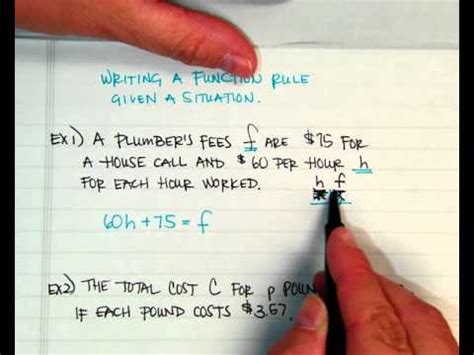 WRITING A FUNCTION RULE
GIVEN A SITUATION.
EX1) A PLUMBER'S FEES f ARE $75 FOR
A HOUSE CALL AND $60 PER HOUR h
FOR EACH HOUR WORKED.
h f
60h+75=f
EX2) THE TOTAL COST C FOR p
IF EACH POUND COSTS $3.57.